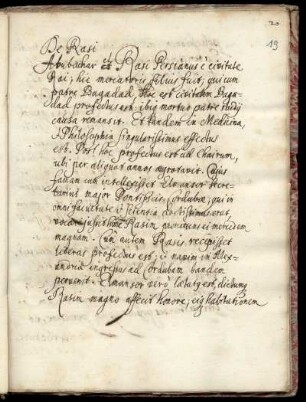 20
19
De Rasi
Abubachar Rasi Persianus è civitate
Rai; hic mercatoris filius fuit; qui cum
patre Bagadad, hoc est civitatem Baga-
dad profectus est, ibiq mortuo patre studij
causa remansit. Et tandem in Medicina,
& Philosophia singularissimus effectus
est. Post hoc profectus est ad Chairum,
ubi per aliquot annos moratus. Cuius
famam cum intellexisset Elmansor Secre-
tarius major Pontificis Cordubæ, qui in
omni facultate & scientia doctissimus erat,
Rasim, promittens ei mercedem
magnam. Cum autem Rasis recepisset
literas profectus est, & navim in Alex-
andria ingressus ad Cordubam tandem
pervenit. Elmansor verò lætatus est, dictumq
Rasim magno affecit honore, eiq habitationem